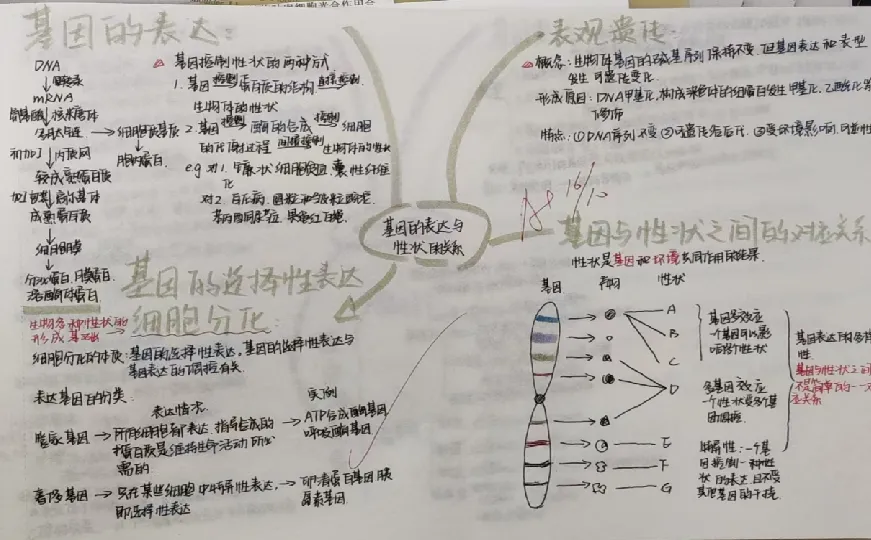 基因的表达:
DNA
↓转录
mRNA
↓
多肽链 → 细胞质基质
初加工↓内质网
较成熟蛋白质
↓高尔基体
成熟蛋白质
↓
细胞膜
分泌蛋白、膜蛋白、
溶酶体蛋白
胞内蛋白.
基因控制性状的两种方式
1. 基因 控制 蛋白质的结构 直接控制
生物体的性状
2. 基因 控制 酶的合成 控制 细胞
的代谢过程 间接控制 生物体的性状
e.g 对1. 镰状细胞贫血、囊性纤维
化
对2. 白化病、圆粒和皱粒豌豆、
表观遗传:
概念:生物体基因的碱基序列保持不变,但基因表达和表型
发生可遗传变化.
形成原因:DNA甲基化,构成染色体的组蛋白发生甲基化、乙酰化等
修饰
特点:①DNA序列不变 ②可遗传给后代 ③受环境影响,可逆性
16/10
基因的表达与
性状的关系
基因与性状之间的对应关系
性状是基因和环境共同作用的结果.
基因 产物 性状
A
B
C
D
E
F
G
基因多效应
一个基因可以影
响多个性状
多基因效应
一个性状受多个基
因调控.
特异性:一个基
因控制一种性
状的表达,且不受
其他基因的干扰
基因表达的多样
性.
基因与性状之间
不是简单的一一对
应关系
基因的选择性表达
细胞分化:
生物多种性状的
形成基础
细胞分化的本质:基因的选择性表达,基因的选择性表达与
基因表达的调控有关.
表达基因的分类.
表达情况 实例
管家基因 → 所有细胞都表达,指导合成的 → ATP合成酶基因
蛋白质是维持生命活动所必 呼吸酶基因
需的
奢侈基因 → 只在某些细胞中特异性表达, → 卵清蛋白基因、胰
即选择性表达 岛素基因.